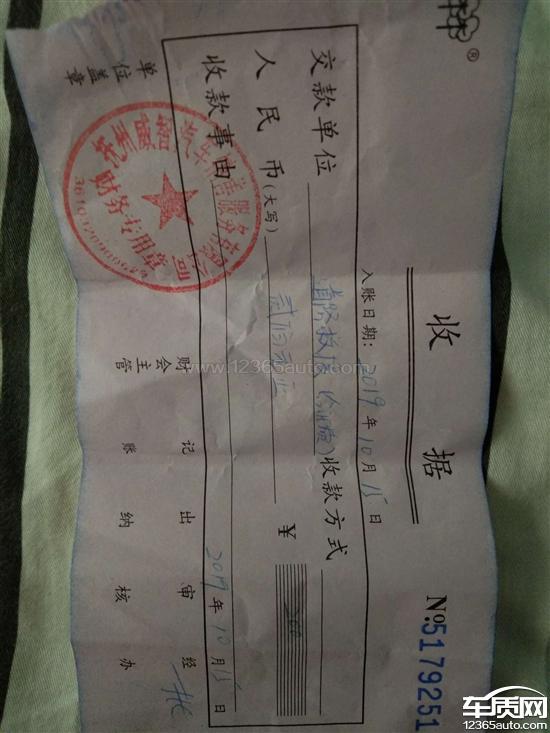 收据
№5179251
入账日期：2019年10月15日
交款单位
道路救援
收款方式
人民币(大写)
贰佰元
¥
200
收款事由
2019年10月15日
单位盖章
财会主管
记账
出纳
审核
经办
财务专用章
www.12365auto.com
车质网
12365auto.com
®